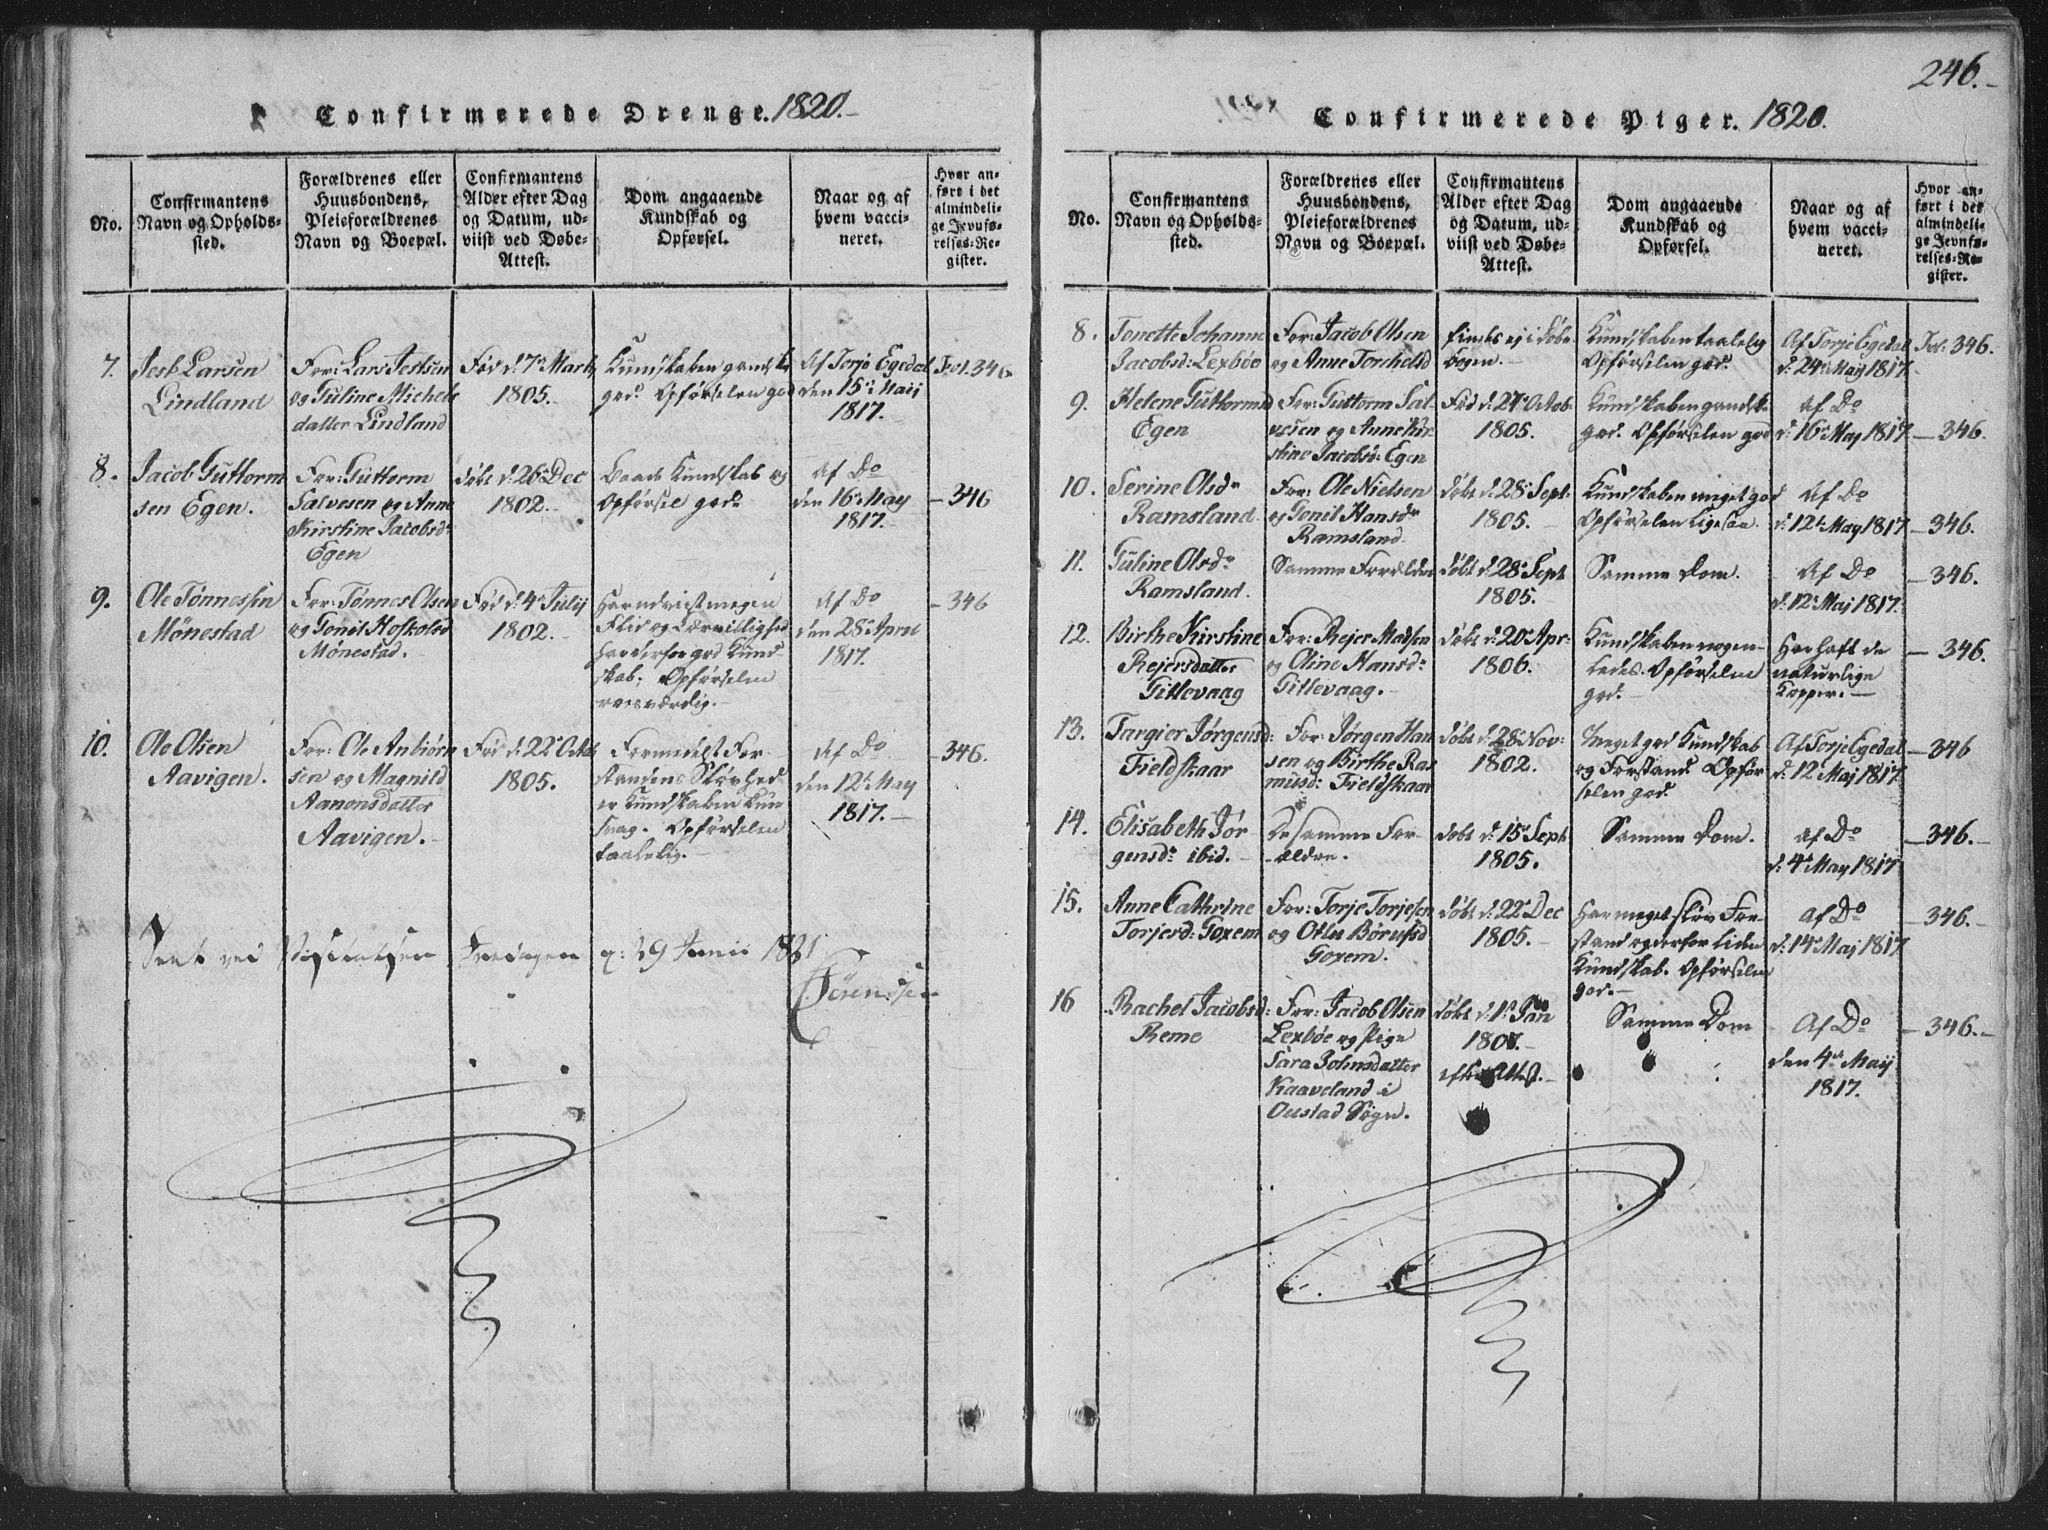 246.
Confirmerede Drenge. 1820.
No.
Confirmantens
Navn og Opholds-
sted.
Forældrenes eller
Huusbondens,
Pleieforældrenes
Navn og Boepæl.
Confirmantens
Alder efter Dag
og Datum, ud-
viist ved Døbe-
Attest.
Dom angaaende
Kundskab og
Opførsel.
Naar og af
hvem vacci-
neret.
Hvor an-
ført i det
almindeli-
ge Jevnfø-
relses-Re-
gister.
7.
Lindland
For: Lars
og Guline Michels
datter Lindland
Fød d. 7de Marts
1805.
Kundskaben gandske
god. Opførselen god
Af Torje Egedal
den 15de Maij
1817.
Fol. 346
8.
Jacob Guttorm
sen Egen.
For: Guttorm
Salvesen og Anne
Kirstine Jacobsd:
Egen
døbt d. 26de Dec
1802.
Baade Kundskab og
Opførsel god.
Af Do
den 16de May
1817.
346
9.
Ole Tønnessen
Mønestad
For: Tønnes Olsen
og Gonil
Mønestad.
Fød d. 4de Julij
1802.
Har udviist megen
Flid og Lærvillighed
har derfor god Kund
skab; Opførselen
roesværdig.
Af Do
den 28de April
1817.
346
10.
Ole Olsen
Aavigen.
For: Ole Anbiørn
sen og Magnild
Aanonsdatter
Aavigen.
Fød d. 22de Octob
1805.
Formedelst For-
standens Sløvhed
er Kundskaben kun
svag. Opførselen
taalelig.
Af Do
den 12te May
1817.
346.
Seet ved Visitatsen 29 Junii 1821
Sørenssen
Confirmerede Piger. 1820.
No.
Confirmantens
Navn og Opholds-
sted.
Forældrenes eller
Huusbondens,
Pleieforældrenes
Navn og Boepæl.
Confirmantens
Alder efter Dag
og Datum, ud-
viist ved Døbe-
Attest.
Dom angaaende
Kundskab og
Opførsel.
Naar og af
hvem vacci-
neret.
Hvor an-
ført i det
almindeli-
ge Jevnfø-
relses-Re-
gister.
8.
Tonette Johanne
Jacobsd: Lexbøe
For: Jacob Olsen
og Anne Torchelsd
findes ej i Døbe-
bogen.
Kundskaben taalelig
Opførselen god.
Af Torje Egedal
d. 24de Maij 1817.
Fol: 346.
9.
Helene Guttormsd
Egen
For: Guttorm Sal-
vesen og Anne Kir-
stine Jacobsd: Egen
Fød d. 27de Octob-
1805.
Kundskaben gandske
god. Opførselen god
Af Do
d. 16de May 1817
346.
10.
Serine Olsdr
Ramsland.
For: Ole Nielsen
og Gonil Hansdr
Ramsland
døbt d. 28de Sept.
1805.
Kundskaben meget god
Opførselen ligesaa
Af Do
d. 12te May 1817
346.
11.
Guline Olsdr
Ramsland.
Samme Forældre
døbt d. 28de Sept
1805.
Samme Dom.
Af Do
d. 12te Maj 1817.
346.
12.
Birthe Kirstine
Rejersdatter
Gitlevaag
For: Rejer Madsen
og Oline Hansd:
Gitlevaag.
døbt d. 20de Apr:
1806.
Kundskaben nogen-
ledes. Opførselen
god.
Har haft de
naturlige
Kopper.
346.
13.
Targier Jørgensd:
Fieldskaar
For: Jørgen Han
sen og Birthe Ras
musd: Fieldskaar
døbt d. 28de Nov:
1802.
Meget god Kundskab
og Forstand. Opfør-
selen god.
Af Torje Egedal
d. 12te Maj 1817.
346
14.
Elisabeth Jør
gensdr ibid.
De samme For-
ældre.
døbt d. 15de Sept
1805.
Samme Dom.
Af Do
d. 4de May 1817
346.
15.
Anne Cathrine
Torjersd: Goxem
For: Torje Torjesen
og
Goxem.
døbt d. 22de Dec
1805.
Har meget sløv For-
stand og derfor liden
Kundskab. Opførselen
god.
Af Do
d. 14de Maj 1817
346.
16
Rachel Jacobsd:
Reme
For: Jacob Olsen
Lexbøe og Pige
Sara Johnsdatter
Kaaveland i
Oustad Sogn.
døbt d. 1te Jan
1807.
efter Attest.
Samme Dom
Af Do
den 4de Maij
1817.
346.